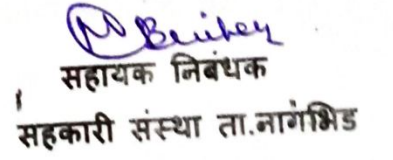 सहायक निबंधक
सहकारी संस्था ता.नागंभिड